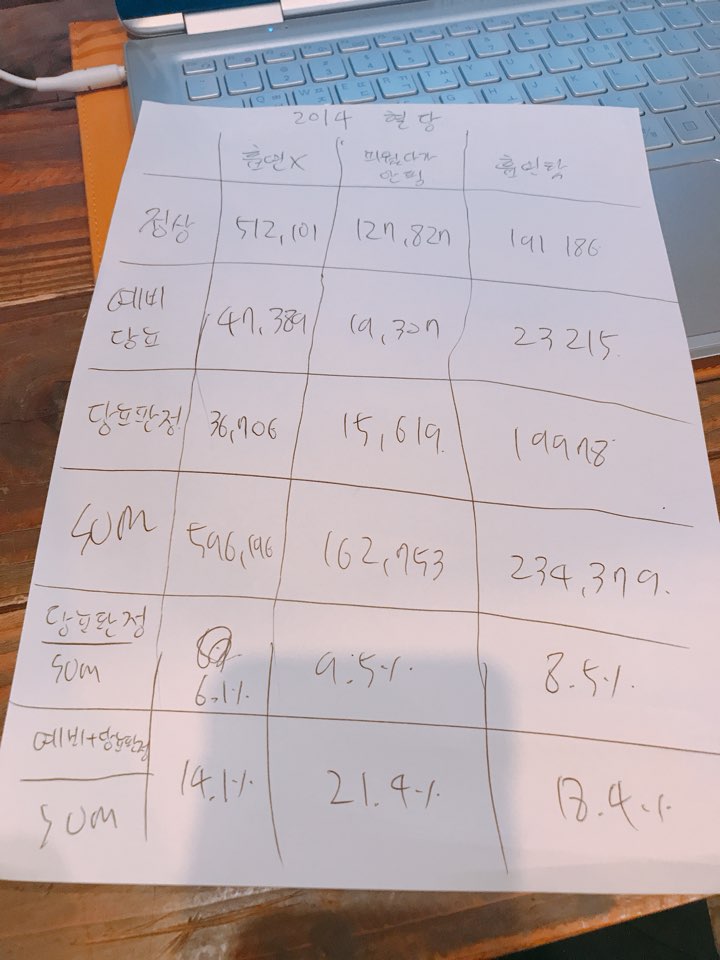 2014 혈당
흡연X 피웠다가
안핌
정상 512,101 127,827 191 186
예비
당뇨 47,389 19,307 23 215
당뇨판정 36,706 15,619 19978
SUM 596,196 162,753 234,379.
당뇨판정
SUM 6.1% 9.5% 8.5%
예비+당뇨판정
SUM 14.1% 21.4% 18.4%